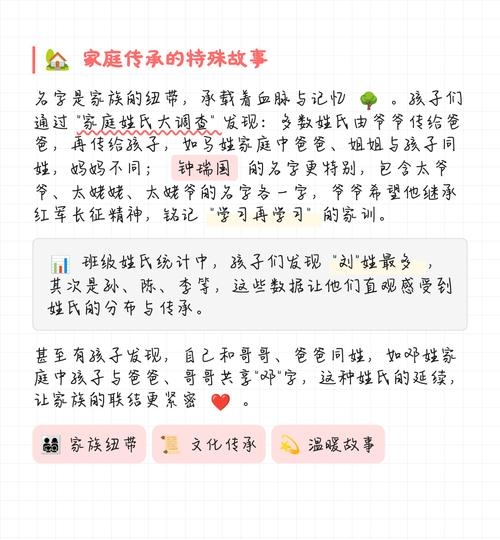 🏡 家庭传承的特殊故事
名字是家族的纽带，承载着血脉与记忆 🌳 。孩子们
通过"家庭姓氏大调查"发现：多数姓氏由爷爷传给爸
爸，再传给孩子，如马姓家庭中爸爸、姐姐与孩子同
姓，妈妈不同； 钟瑞国 的名字更特别，包含太爷
爷、太姥姥、太姥爷的名字各一字，爷爷希望他继承
红军长征精神，铭记 "学习再学习" 的家训。
📊 班级姓氏统计中，孩子们发现 "刘"姓最多 ，
其次是孙、陈、李等，这些数据让他们直观感受到
姓氏的分布与传承。
甚至有孩子发现，自己和哥哥、爸爸同姓，如邓姓家
庭中孩子与爸爸、哥哥共享"邓"字，这种姓氏的延续，
让家族的联结更紧密 ❤️ 。
👨‍👩‍👧‍👦 家族纽带 📜 文化传承 💫 温暖故事